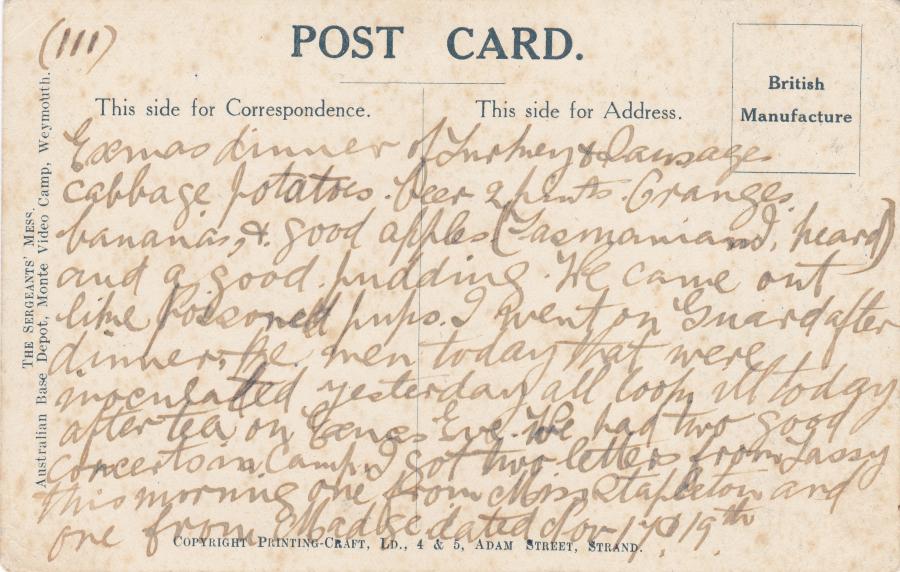 (111)
POST CARD.
British
Manufacture
This side for Correspondence.
This side for Address.
THE SERGEANTS' MESS.
Australian Base Depot, Monte Video Camp, Weymouth.
Exmas dinner of Turkey & Sausages
cabbage potatoes. beer 2 pints. Oranges.
bananas, & good apples (Tasmanian I, heard)
and a good pudding. We came out
like Poisoned pups. I went on Guard after
dinner, the men today that were
inoculated yesterday all look ill today
after tea on Exmas Eve. We had two good
concerts in Camp. I got two letters from Tassy
this morning one from Mrs Stapleton and
one from Madge dated Nov 17 & 19th
COPYRIGHT PRINTING-CRAFT, LD., 4 & 5, ADAM STREET, STRAND.